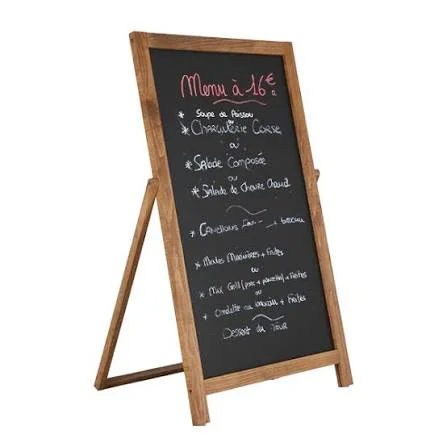 Menu à 16€
* Soupe de Poisson
ou
* Charcuterie Corse
ou
* Salade Composée
ou
* Salade de Chèvre Chaud
* Canellonis
* Moules Marinières + Frites
ou
* Mix Grill (porc + panzetta) + Frites
ou
* Omelette au brocciu + Frites
Dessert du Jour